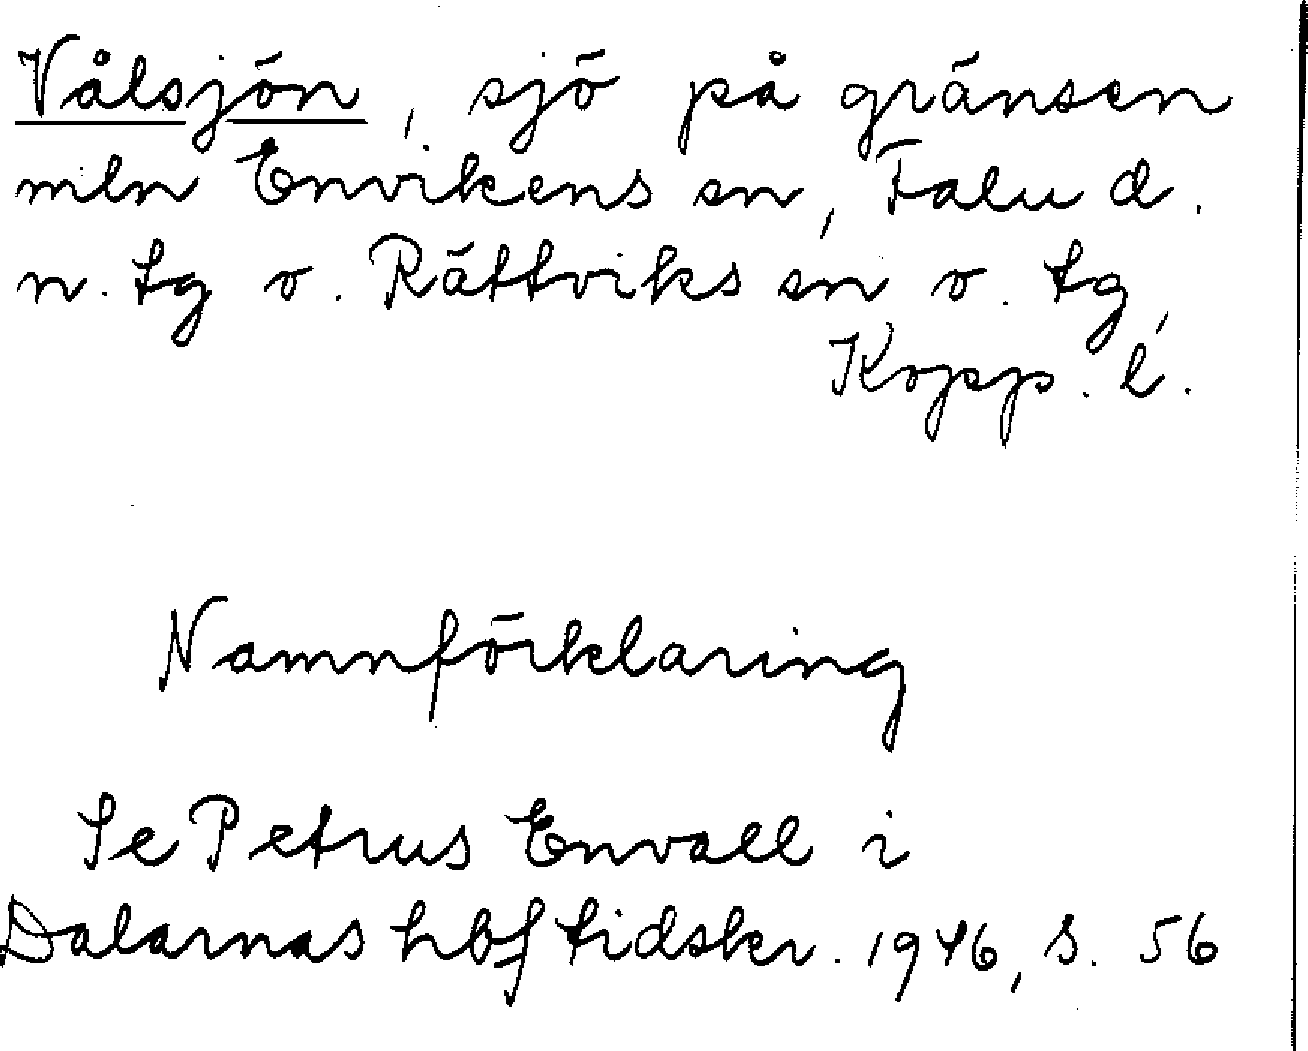 Vålsjön, sjö på gränsen
mln Envikens sn, Falu d.
n. tg o. Rättviks sn o. tg,
Kopp. l.
Namnförklaring
Se Petrus Envall i
Dalarnas hbf tidskr. 1946, s. 56